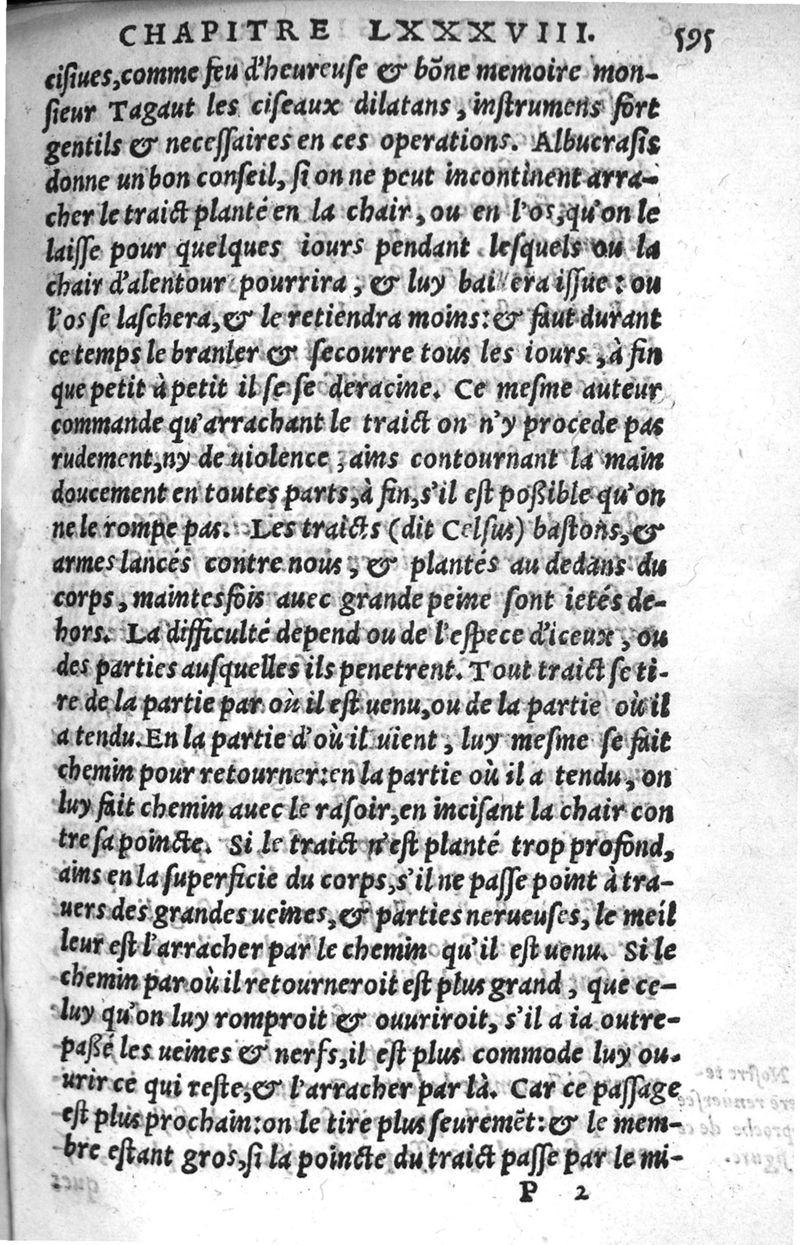 CHAPITRE LXXXVIII. 595
cisiues,comme feu d'heureuse & bõne memoire mon-
sieur Tagaut les ciseaux dilatans, instrumens fort
gentils & necessaires en ces operations. Albucrasis
donne un bon conseil, si on ne peut incontinent arra-
cher le traict planté en la chair, ou en l'os, qu'on le
laisse pour quelques iours pendant lesquels ou la
chair d'alentour pourrira, & luy baillera issue: ou
l'os se laschera, & le retiendra moins: & faut durant
ce temps le branler & secourre tous les iours, à fin
que petit à petit il se se deracine. Ce mesme auteur
commande qu'arrachant le traict on n'y procede pas
rudement, ny de uiolence, ains contournant la main
doucement en toutes parts, à fin, s'il est poßible qu'on
ne le rompe pas. Les traicts (dit Celsus) bastons, &
armes lancés contre nous, & plantés au dedans du
corps, maintesfois auec grande peine sont ietés de-
hors. La difficulté depend ou de l'espece d'iceux, ou
des parties ausquelles ils penetrent. Tout traict se ti-
re de la partie par où il est uenu, ou de la partie où il
a tendu. En la partie d'où il uient, luy mesme se fait
chemin pour retourner: en la partie où il a tendu, on
luy fait chemin auec le rasoir, en incisant la chair con
tre sa poincte. Si le traict n'est planté trop profond,
ains en la superficie du corps, s'il ne passe point à tra-
uers des grandes ueines, & parties nerueuses, le meil
leur est l'arracher par le chemin qu'il est uenu. Si le
chemin par où il retourneroit est plus grand, que ce-
luy qu'on luy romproit & ouuriroit, s'il a ia outre-
paßé les ueines & nerfs, il est plus commode luy ou-
urir ce qui reste, & l'arracher par là. Car ce passage
est plus prochain: on le tire plus seuremẽt: & le mem-
bre estant gros, si la poincte du traict passe par le mi-
P 2